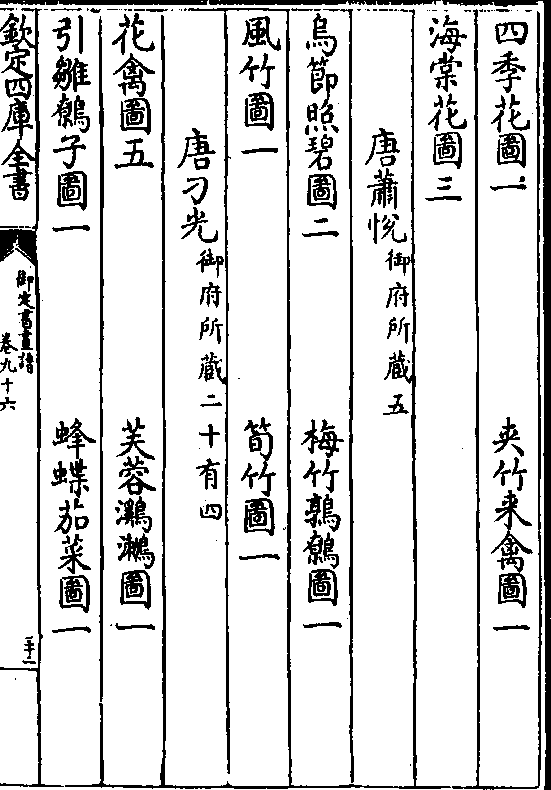 四季花圖一　夾竹来禽圖一
海棠花圖三
唐蕭悅御府所藏五
烏節照碧圖二　梅竹鶉鷯圖一
風竹圖一　筍竹圖一
唐刁光御府所藏二十有四
花禽圖五　芙蓉鸂鶒圖一
引雛鷯子圖一　蜂蝶茄菜圖一
欽定四庫全書　御定書畫譜
卷九十六